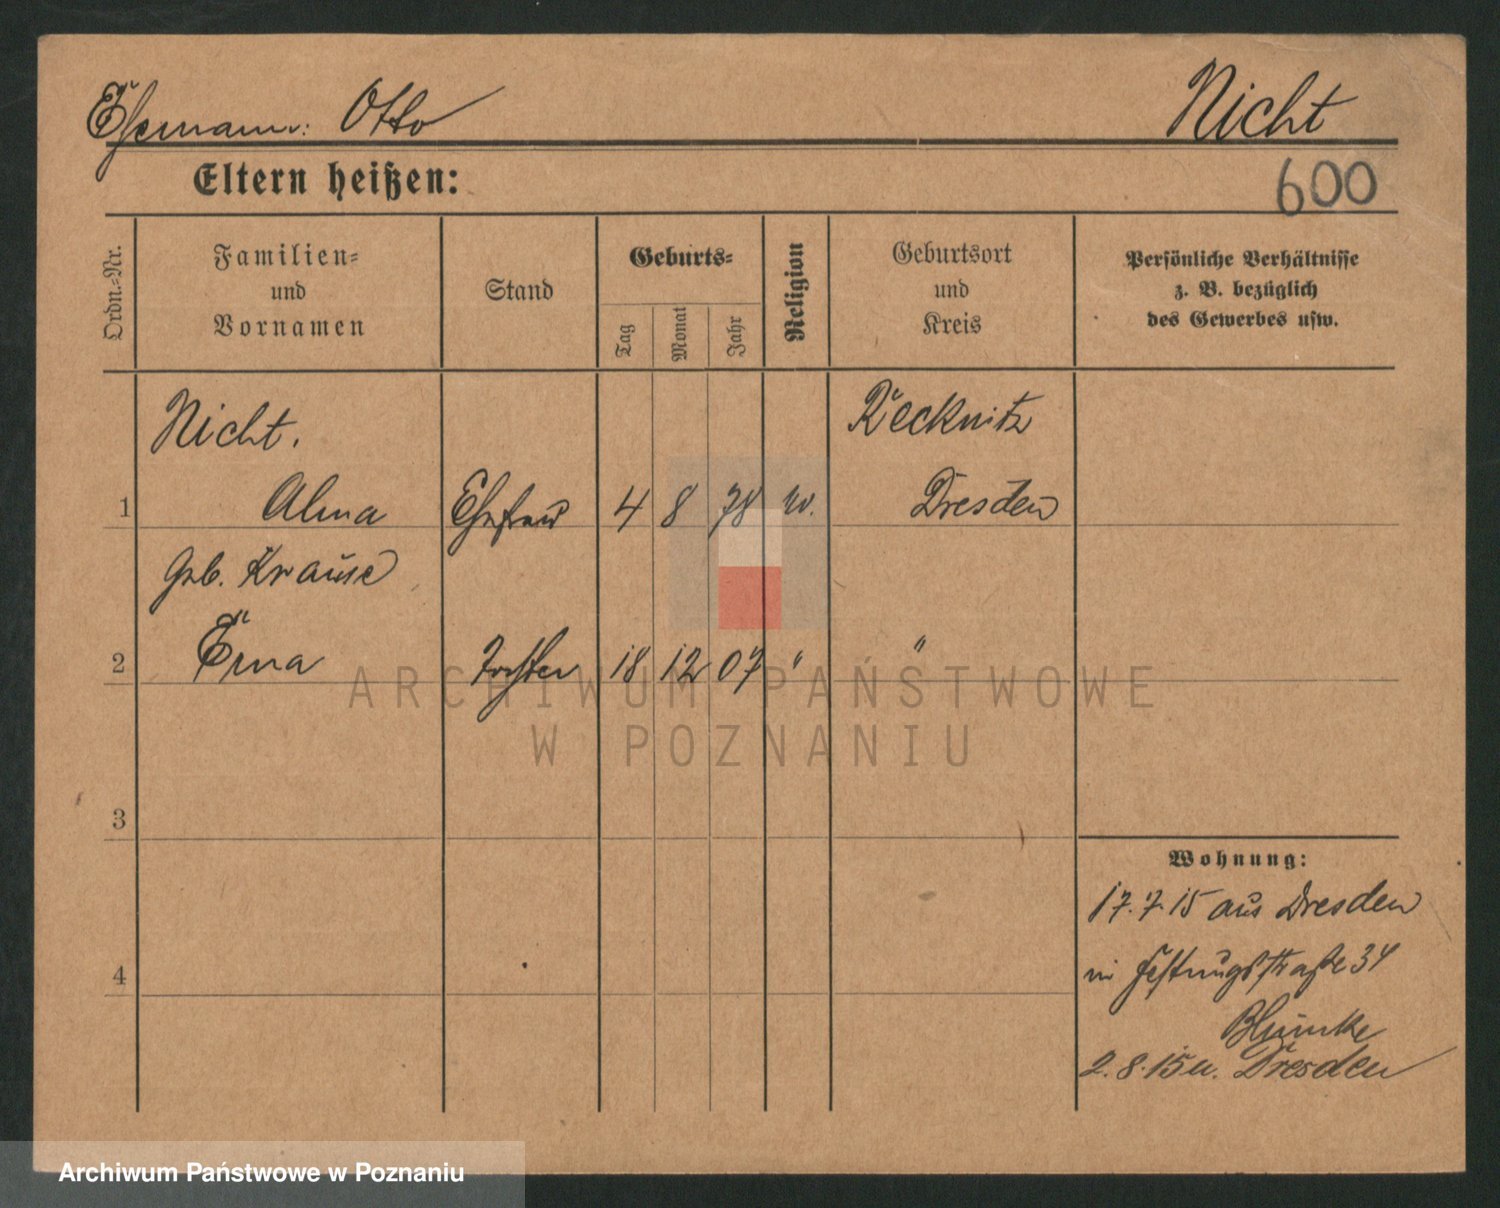 Ehemann: Otto Nicht
Eltern heißen: 600
Ordn.-Nr.
Familien-
und
Vornamen
Stand
Geburts-
Tag
Monat
Jahr
Religion
Geburtsort
und
Kreis
Persönliche Verhältnisse
z. B. bezüglich
des Gewerbes usw.
Nicht. Recknitz
1 Alma Ehefrau 4 8 78 ev. Dresden
geb. Krause
2 Erna Tochter 18 12 07 " "
3
4
Wohnung:
17.7.15 aus Dresden
in Festungsstraße 34
2.8.15 n. Dresden
ARCHIWUM PAŃSTWOWE
W POZNANIU
Archiwum Państwowe w Poznaniu